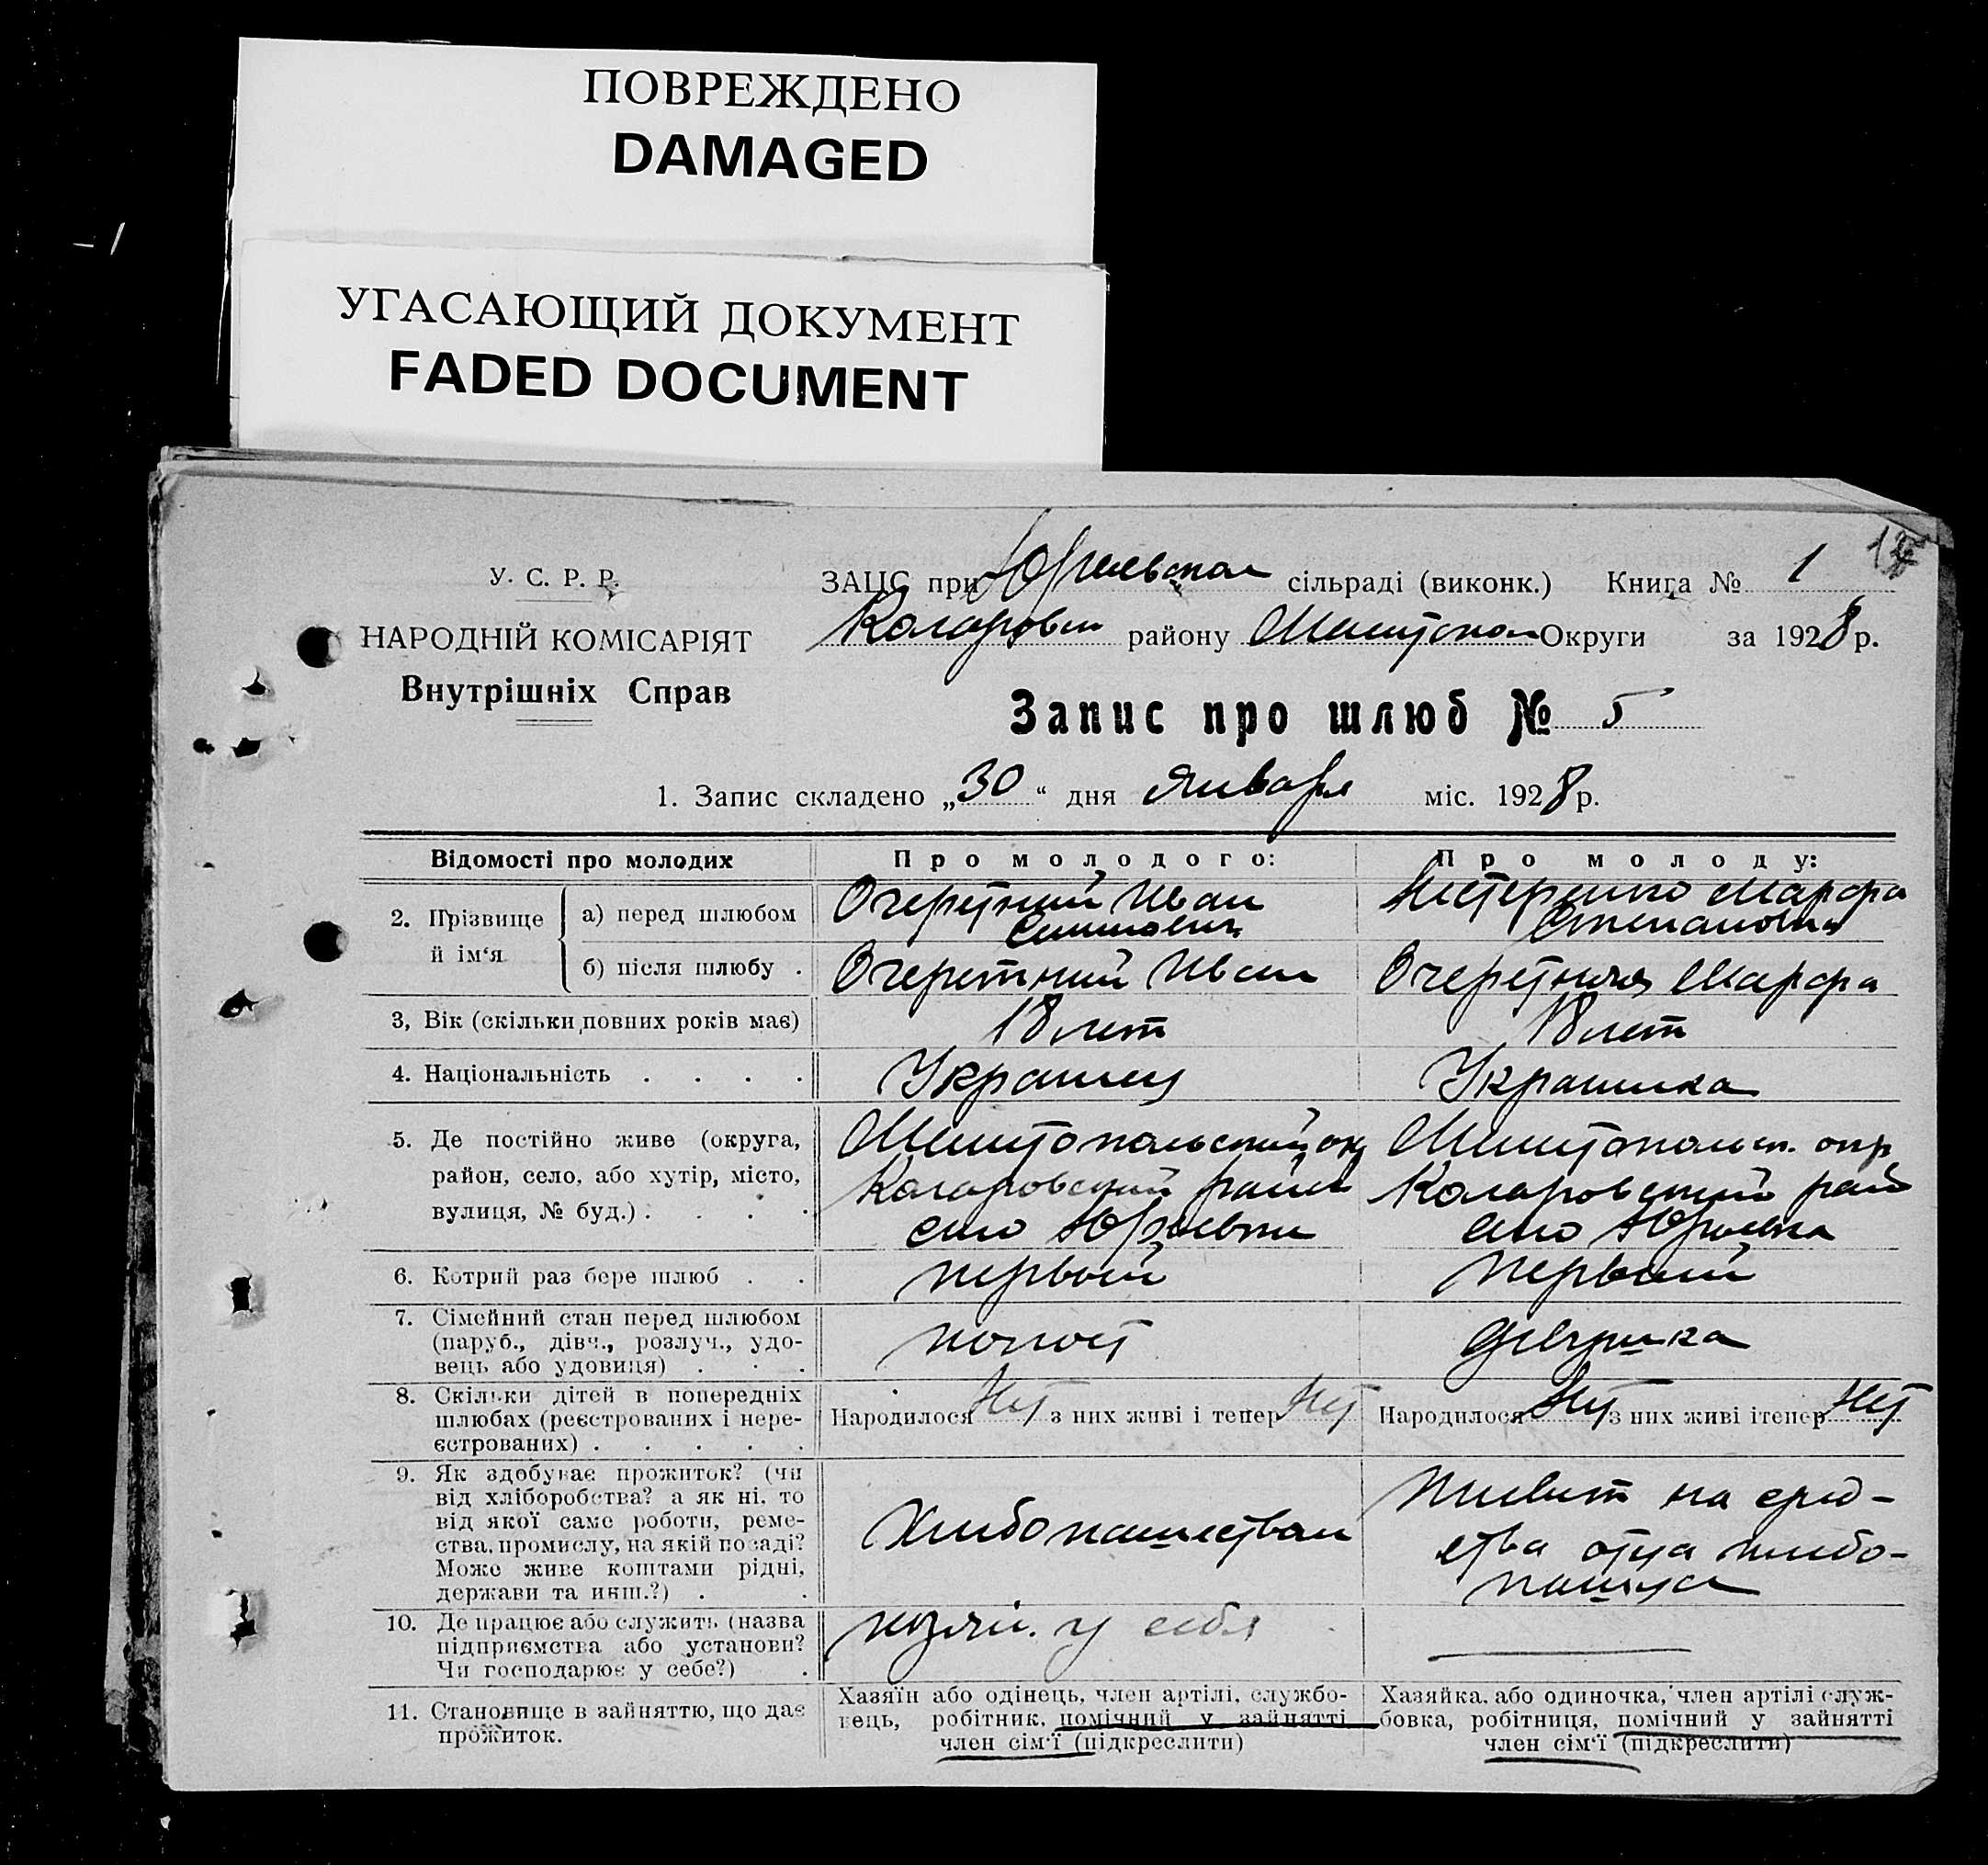 ПОВРЕЖДЕНО
DAMAGED
УГАСАЮЩИЙ ДОКУМЕНТ
FADED DOCUMENT
У. С. Р. Р.
НАРОДНІЙ КОМІСАРІЯТ
Внутрішніх Справ
ЗАЦС при Юрьевском сільраді (виконк.) Книга № 1
района Округи за 1928 р.
Запис про шлюб № 5
1. Запис складено „30“ дня Января міс. 1928 р.
Відомості про молодих Про молодого: Про молоду:
2. Прізвище й ім‘я
а) перед шлюбом Очеретний Иван Нестеренко Марфа
Степановна
б) після шлюбу . Очеретний Иван Очеретняя Марфа
3, Вік (скільки повних років має) 18 лет 18 лет
4. Національність . . . . Украинец Украинка
5. Де постійно живе (округа, Мелитопольский окр Мелитопольск. окр
район, село, або хутір, місто, Коларовский район Коларовский рай
вулиця, № буд.) . . . . село Юрьевка село Юрьевка
6. Котрий раз бере шлюб . . первый первый
7. Сімейний стан перед шлюбом
(паруб., дівч., розлуч., удо-
вець або удовиця) . . . холост девушка
8. Скільки дітей в попередніх
шлюбах (реєстрованих і нере-
єстрованих) . . . . .
Народилося Нет з них живі і тепер Нет Народилося Нет з них живі і тепер Нет
9. Як здобуває прожиток? (чи
від хліборобства? а як ні, то
від якої саме роботи, реме-
ства, промислу, на якій посаді?
Може живе коштами рідні,
держави та инш.?) . .
Хлебопашеством
живет на сред-
ства отца хлебо-
пашца
10. Де працює або служить (назва
підприємства або установи?
Чи господарює у себе?) .
хозяй. у себя
11. Становище в зайняттю, що дає
прожиток.
Хазяїн або одінець, член артілі, службо-
вець, робітник, помічний у зайнятті
член сім‘ї (підкреслити)
Хазяйка, або одиночка, член артілі служ-
бовка, робітниця, помічний у зайнятті
член сім‘ї (підкреслити)